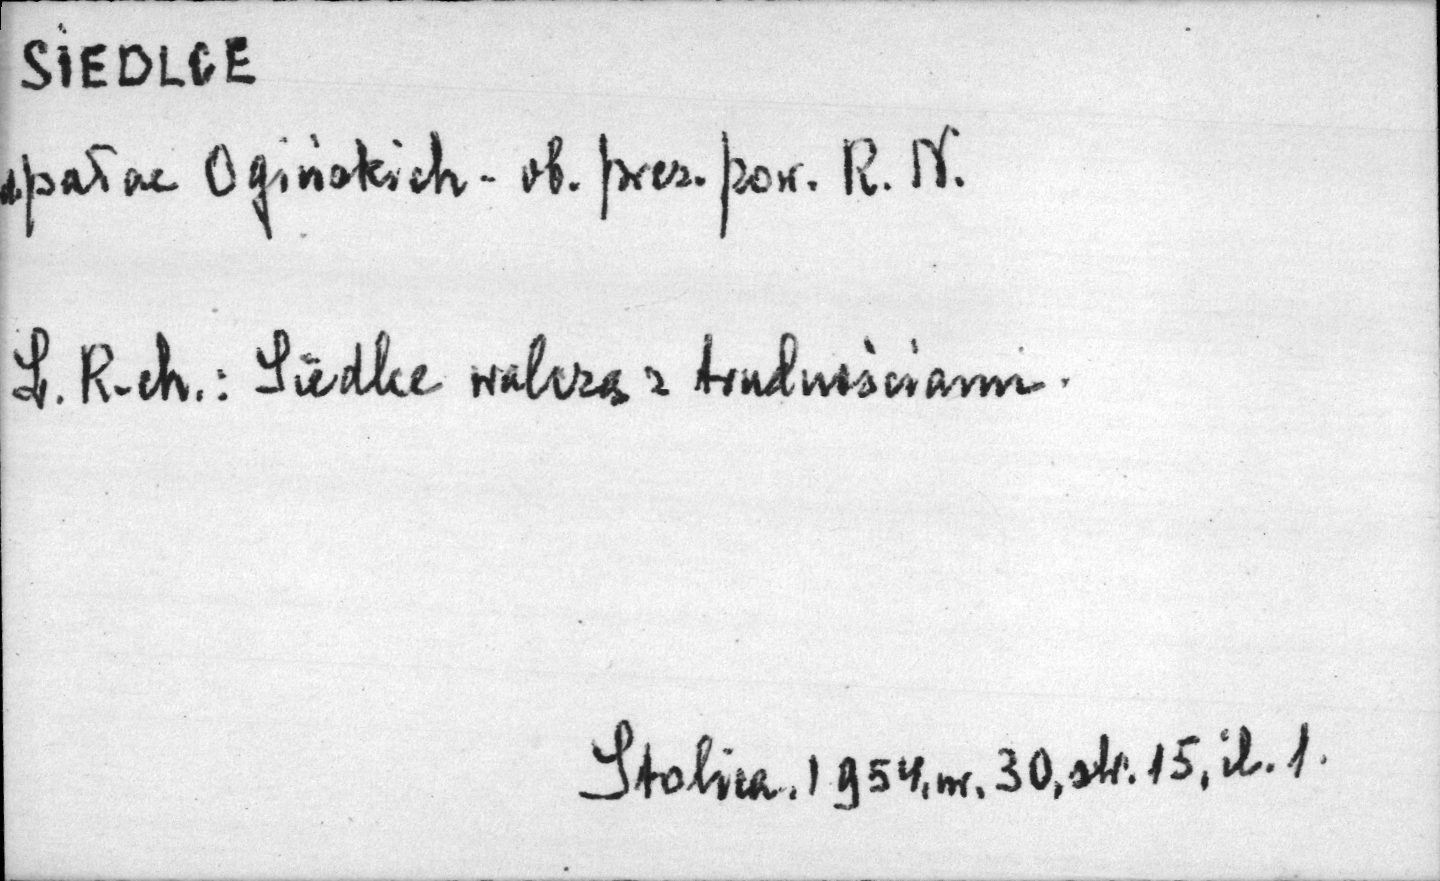 SIEDLCE
pałac Ogińskich - ob. prez. pow. R. N.
L. R-ch.: Siedlce walczą z trudnościami.
Stolica. 1954. nr. 30, str. 15, il. 1.